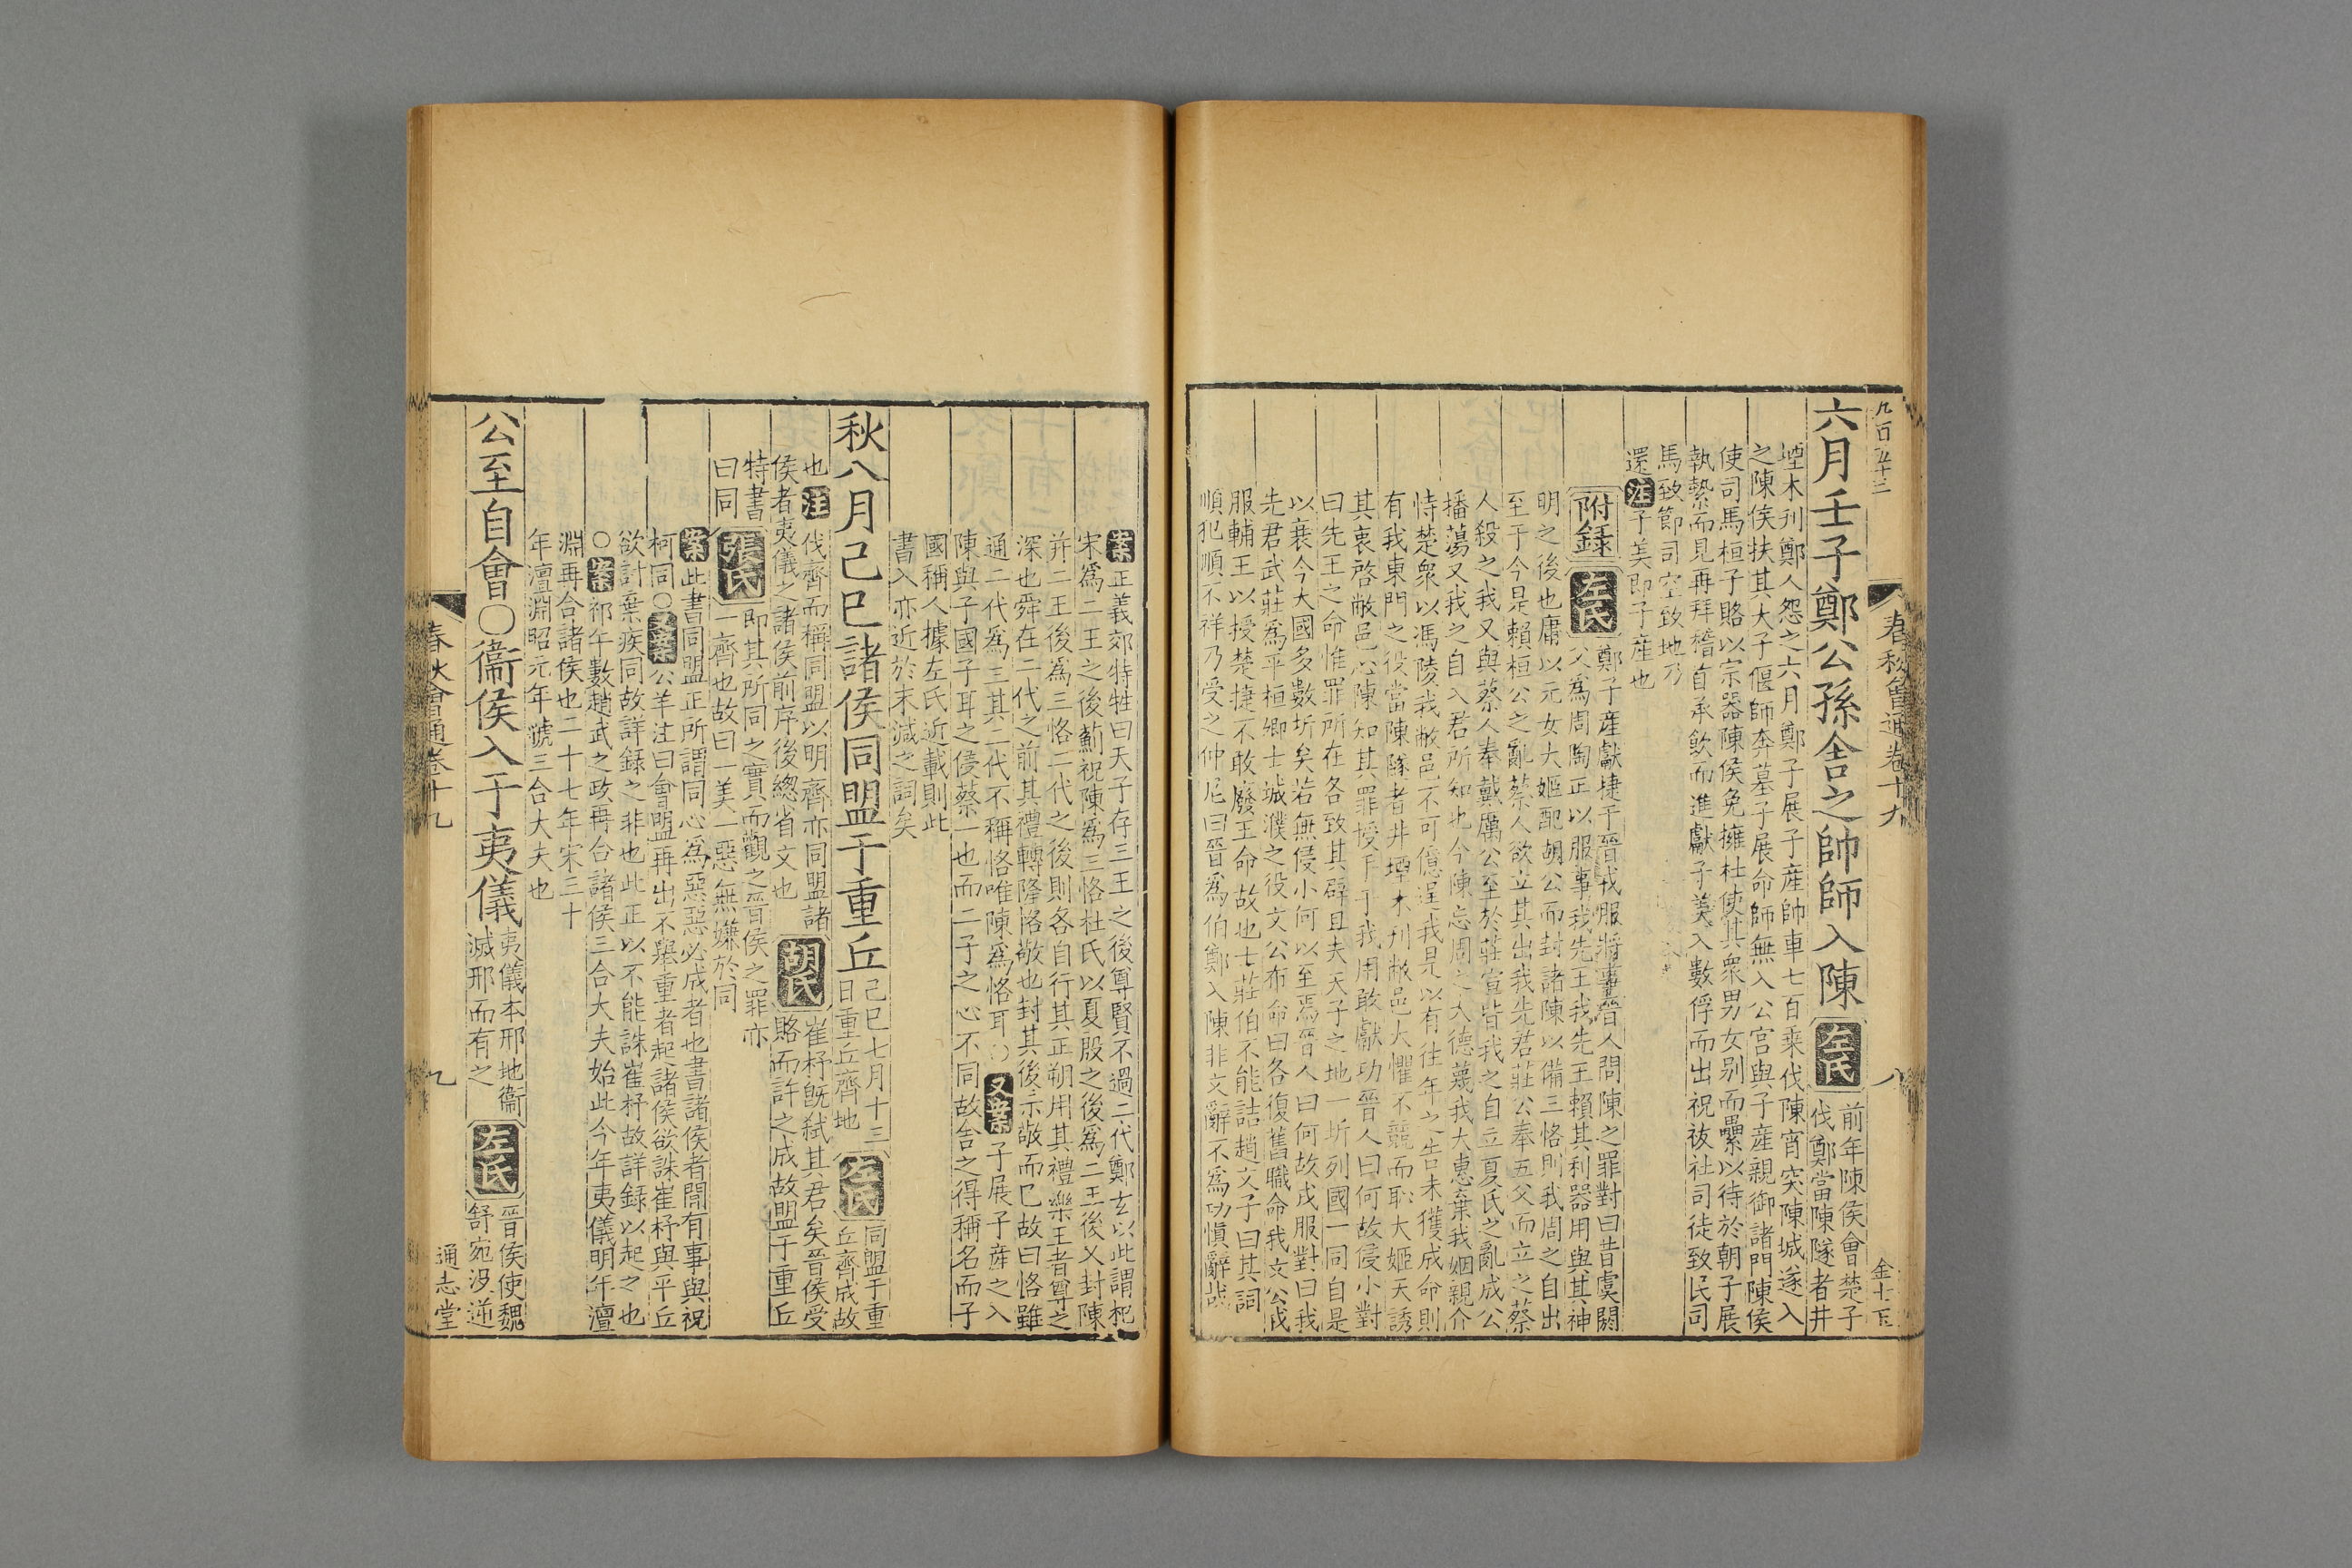 九百五十三
春秋會通卷十九
八
金士玉
六月壬子鄭公孫舍之帥師入陳
左氏
前年陳侯會楚子
伐鄭當陳隧者井
堙木刋鄭人怨之六月鄭子展子産帥車七百乘伐陳宵突陳城遂入
之陳侯扶其大子偃師奔墓子展命師無入公宮與子産親御諸門陳侯
使司馬桓子賂以宗器陳侯免擁社使其衆男女别而纍以待於朝子展
執縶而見再拜稽首承飲而進獻子美入數俘而出祝祓社司徒致民司
馬致節司空致地乃
還注子美即子産也
附錄
左氏
鄭子産獻捷于晉戎服將事晉人問陳之罪對曰昔虞閼
父爲周陶正以服事我先王我先王賴其利器用與其神
明之後也庸以元女大姬配胡公而封諸陳以備三恪則我周之自出
至于今是賴桓公之亂蔡人欲立其出我先君莊公奉五父而立之蔡
人殺之我又與蔡人奉戴厲公至於莊宣皆我之自立夏氏之亂成公
播蕩又我之自入君所知也今陳忘周之大德蔑我大惠棄我姻親介
恃楚衆以馮陵我敝邑不可億逞我是以有往年之告未獲成命則
有我東門之役當陳隧者井堙木刋敝邑大懼不競而恥大姬天誘
其衷啓敝邑心陳知其罪授手于我用敢獻功晉人曰何故侵小對
曰先王之命惟罪所在各致其辟且夫天子之地一圻列國一同自是
以衰今大國多數圻矣若無侵小何以至焉晉人曰何故戎服對曰我
先君武莊爲平桓卿士城濮之役文公布命曰各復舊職命我文公戎
服輔王以授楚捷不敢廢王命故也士莊伯不能詰趙文子曰其詞
順犯順不祥乃受之仲尼曰晉爲伯鄭入陳非文辭不爲功愼辭哉
案正義郊特牲曰天子存二王之後尊賢不過二代鄭玄以此謂杞
宋爲二王之後薊祝陳爲三恪杜氏以夏殷之後爲二王後又封陳
并二王後爲三恪二代之後則各自行其正朔用其禮樂王者尊之
深也舜在二代之前其禮轉降恪敬也封其後示敬而已故曰恪雖
通二代爲三其二代不稱恪唯陳爲恪耳○又案子展子産之入
陳與子國子耳之侵蔡一也而二子之心不同故舍之得稱名而子
國稱人據左氏近載則此
書入亦近於末減之詞矣
秋八月己巳諸侯同盟于重丘
己巳七月十三
日重丘齊地
左氏
同盟于重
丘齊成故
也注伐齊而稱同盟以明齊亦同盟諸
侯者夷儀之諸侯前序後總省文也
胡氏
崔杼旣弑其君矣晉侯受
賂而許之成故盟于重丘
特書
曰同
張氏
即其所同之實而觀之晉侯之罪亦
一齊也故曰一美一惡無嫌於同
案此書同盟正所謂同心爲惡惡必成者也書諸侯者間有事與祝
柯同○又案公羊注曰會盟再出不舉重者起諸侯欲誅崔杼與平丘
欲討棄疾同故詳録之非也此正以不能誅崔杼故詳録以起之也
○案祁午數趙武之政再合諸侯三合大夫始此今年夷儀明年澶
淵再合諸侯也二十七年宋三十
年澶淵昭元年虢三合大夫也
公至自會○衞侯入于夷儀
夷儀本邢地衞
滅邢而有之
左氏
晉侯使魏
舒宛沒逆
春秋會通卷十九
九
通志堂